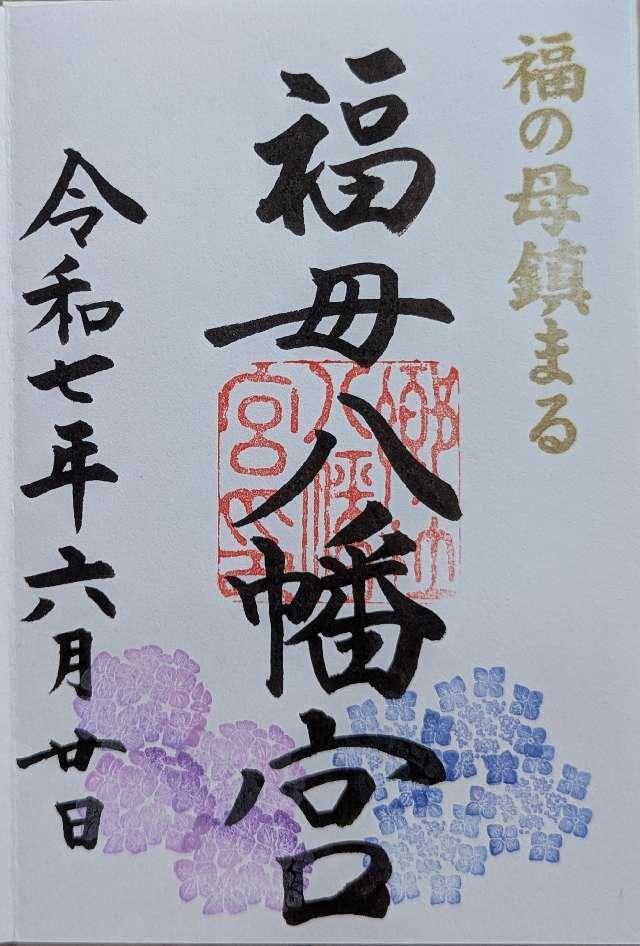 福の母鎮まる
福母八幡宮
令和七年六月廿日